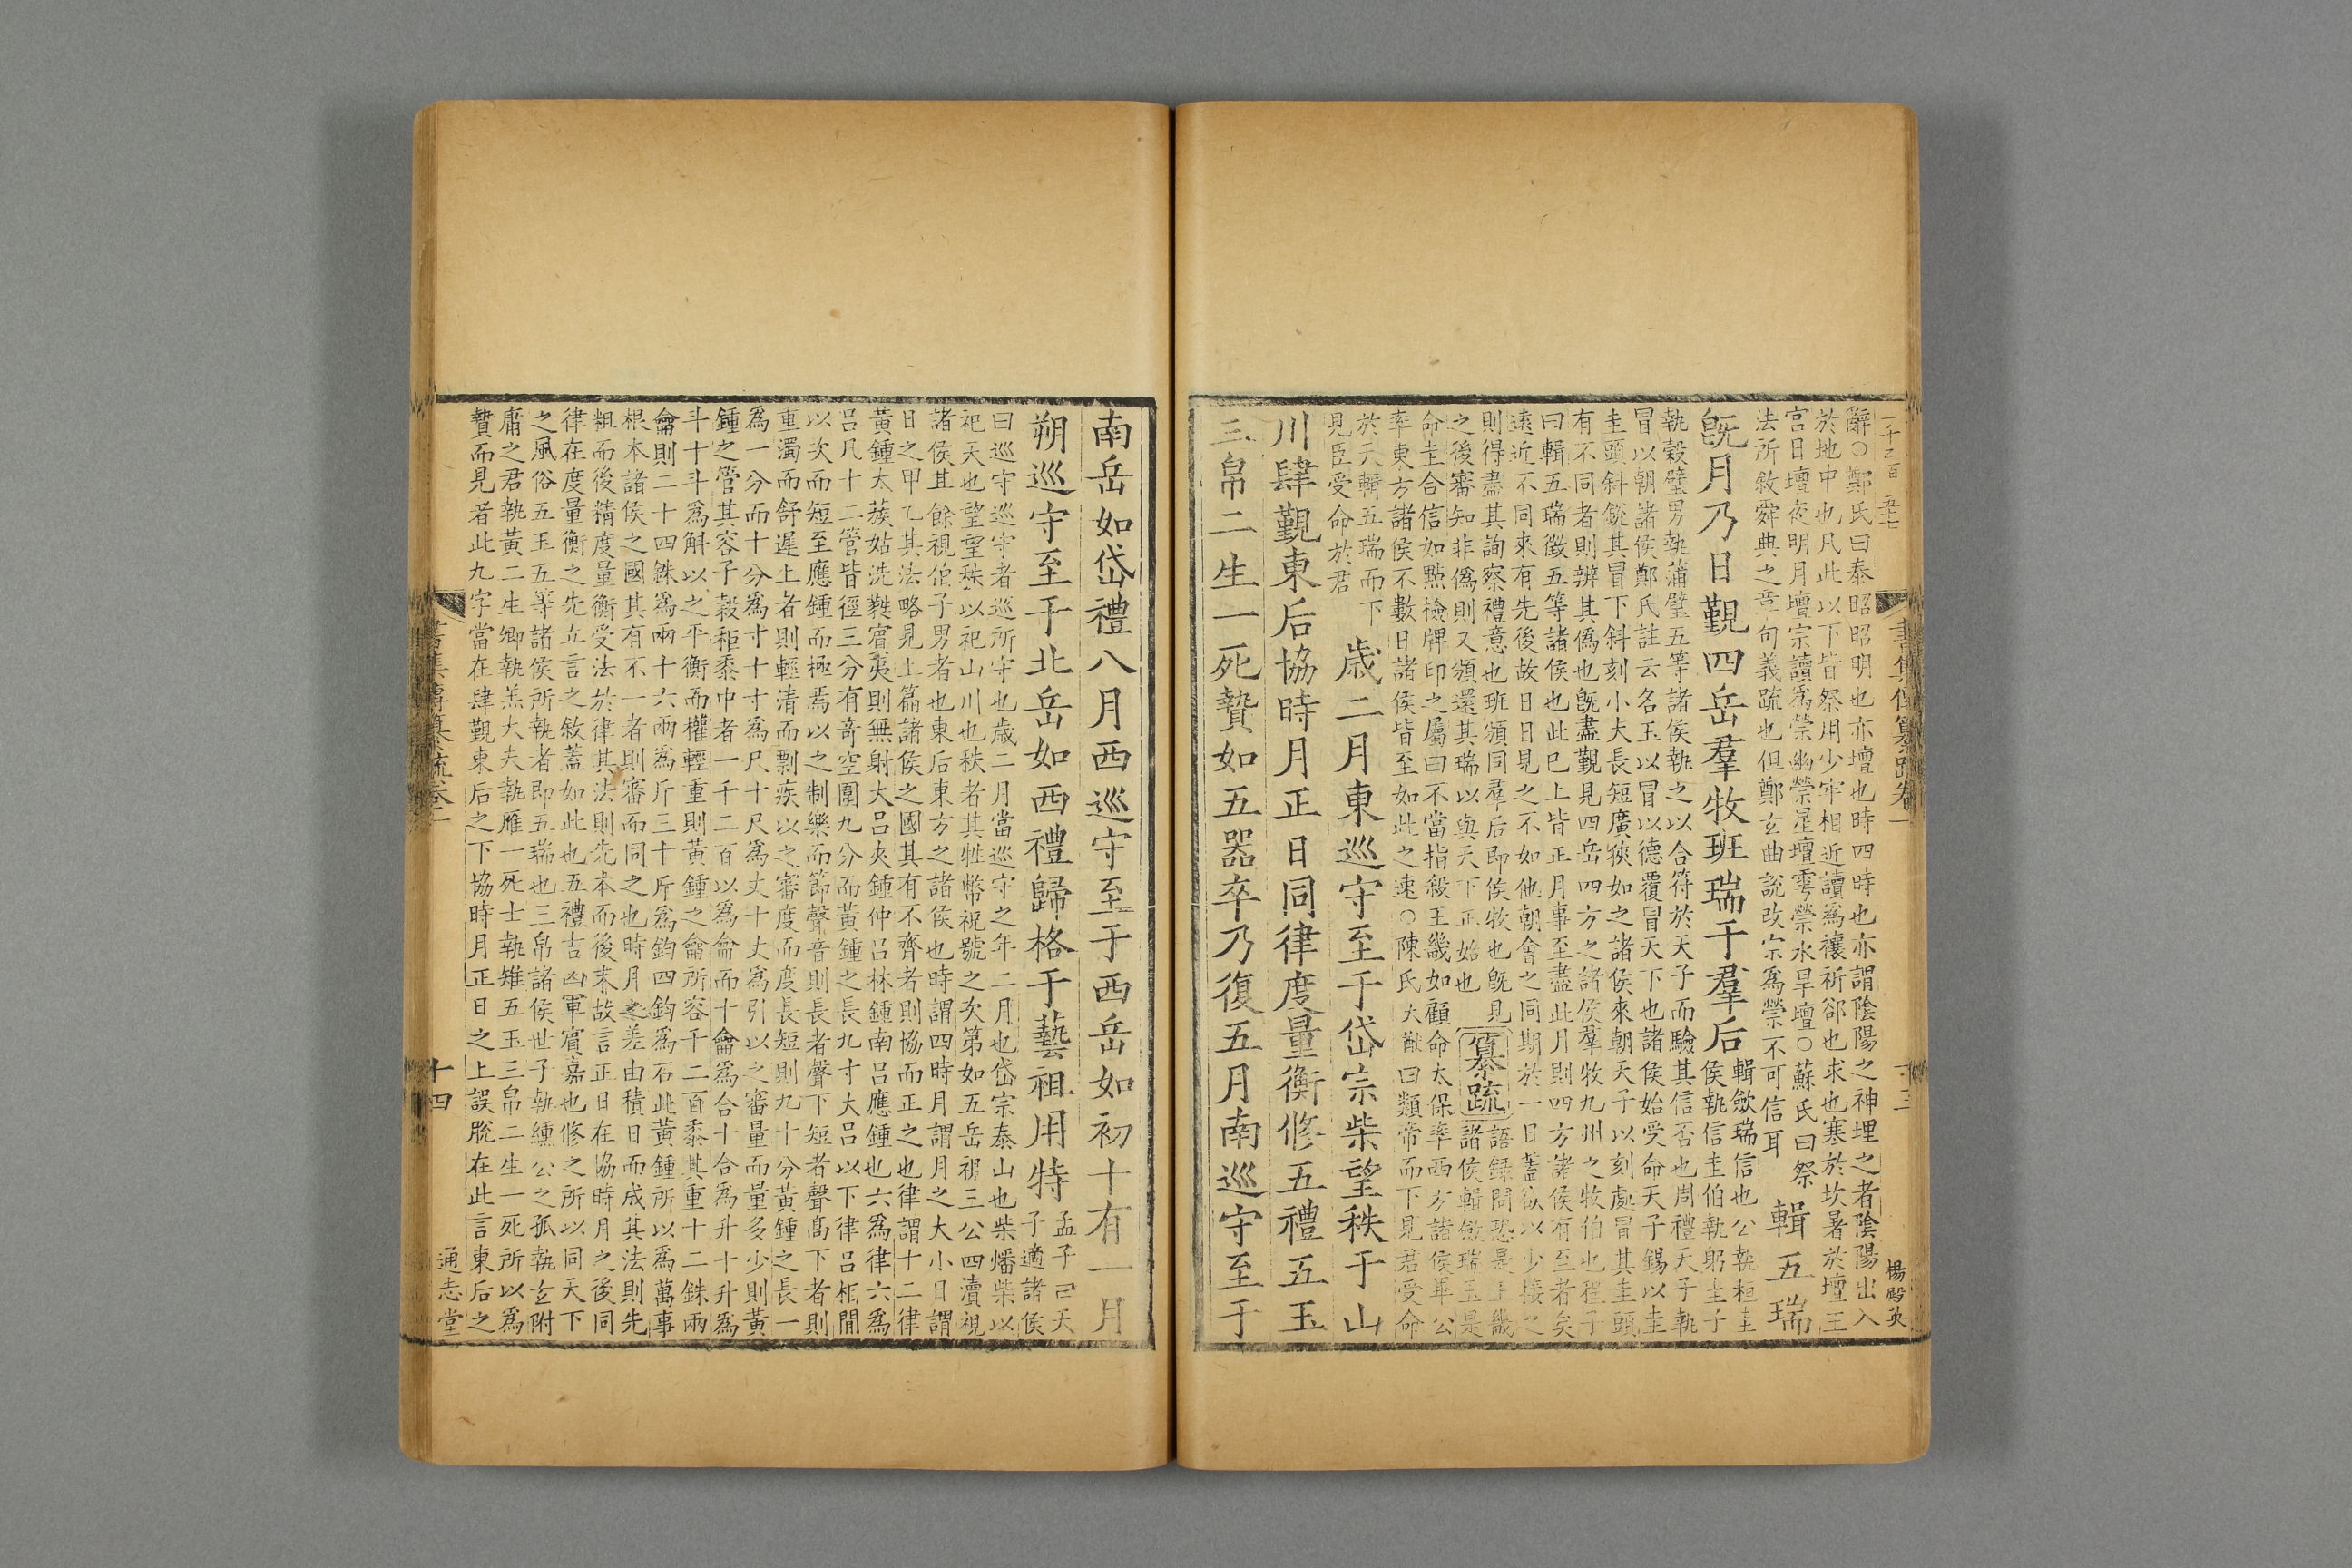 辭○鄭氏曰泰昭昭明也亦壇也時四時也亦謂陰陽之神埋之者陰陽出入
於地中也凡此以下皆祭用少牢相近讀為禳祈郤也求也寒於坎暑於壇王
宮日壇夜明月壇宗讀為禜幽禜星壇雩禜水旱壇○蘇氏曰祭
法所敘舜典之章句義疏也但鄭玄曲說改宗為禜不可信耳
輯五瑞
旣月乃日覲四岳羣牧班瑞于羣后
輯斂瑞信也公執桓圭
侯執信圭伯執躬圭子
執穀璧男執蒲璧五等諸侯執之以合符於天子而驗其信否也周禮天子執
冒以朝諸侯鄭氏註云名玉以冒以德覆冒天下也諸侯始受命天子錫以圭
圭頭斜銳其冒下斜刻小大長短廣狹如之諸侯來朝天子以刻處冒其圭頭
有不同者則辨其僞也旣盡覲見四岳四方之諸侯羣牧九州之牧伯也程子
曰輯五瑞徵五等諸侯也此已上皆正月事至盡此月則四方諸侯有至者矣
遠近不同來有先後故日日見之不如他朝會之同期於一日蓋欲以少接之
則得盡其詢察禮意也班頒同羣后即侯牧也旣見
之後審知非僞則又頒還其瑞以與天下正始也
纂疏
語錄問恐是王畿
諸侯輯斂瑞玉是
命圭合信如點檢牌印之屬曰不當指殺王畿如顧命太保率西方諸侯畢公
率東方諸侯不數日諸侯皆至如此之速○陳氏大猷曰類帝而下見君受命
於天輯五瑞而下
見臣受命於君
歲二月東巡守至于岱宗柴望秩于山
川肆覲東后協時月正日同律度量衡修五禮五玉
三帛二生一死贄如五器卒乃復五月南巡守至于
楊殿英
南岳如岱禮八月西巡守至于西岳如初十有一月
朔巡守至于北岳如西禮歸格于藝祖用特
孟子曰天
子適諸侯
曰巡守巡守者巡所守也歲二月當巡守之年二月也岱宗泰山也柴燔柴以
祀天也望望秩以祀山川也秩者其牲幣祝號之次第如五岳視三公四瀆視
諸侯其餘視伯子男者也東后東方之諸侯也時謂四時月謂月之大小日謂
日之甲乙其法略見上篇諸侯之國其有不齊者則協而正之也律謂十二律
黃鍾太蔟姑洗蕤賓夷則無射大呂夾鍾仲呂林鍾南呂應鍾也六為律六為
呂凡十二管皆徑三分有奇空圍九分而黃鍾之長九寸大呂以下律呂相間
以次而短至應鍾而極焉以之制樂而節聲音則長者聲下短者聲高下者則
重濁而舒遲上者則輕清而剽疾以之審度而度長短則九十分黃鍾之長一
為一分而十分為寸十寸為尺十尺為丈十丈為引以之審量而量多少則黃
鍾之管其容子穀秬黍中者一千二百以為龠而十龠為合十合為升十升為
斗十斗為斛以之平衡而權輕重則黃鍾之龠所容千二百黍其重十二銖兩
龠則二十四銖為兩十六兩為斤三十斤為鈞四鈞為石此黃鍾所以為萬事
根本諸侯之國其有不一者則審而同之也時月之差由積日而成其法則先
粗而後精度量衡受法於律其法則先本而後末故言正日在協時月之後同
律在度量衡之先立言之敘蓋如此也五禮吉凶軍賓嘉也修之所以同天下
之風俗五玉五等諸侯所執者即五瑞也三帛諸侯世子執纁公之孤執玄附
庸之君執黃二生卿執羔大夫執雁一死士執雉五玉三帛二生一死所以為
贄而見者此九字當在肆覲東后之下協時月正日之上誤脫在此言東后之
書集傳纂疏卷一
十四
通志堂